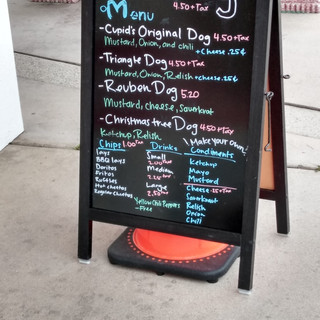 4.50+Tax
Menu
-Cupid's Original Dog 4.50+Tax
Mustard, Onion, and chili +Cheese .25¢
-Triangle Dog 4.50+Tax
Mustard, Onion, Relish +cheese .25¢
-Reuben Dog 5.20
Mustard, cheese, Saurkrat
-Christmas tree Dog 4.50+Tax
Ketchup, Relish
Chips 1.00 Tax
Lays
BBQ Lays
Doritos
Fritos
Hot cheetos
Regular Cheetos
Drinks
Small
Medium
2.25
Large
2.50
Yellow Chili Peppers
-Free
Make your Own:
Condiments
Ketchup
Mayo
Mustard
Cheese .25+Tax
Saurkraut
Relish
Onion
Chili